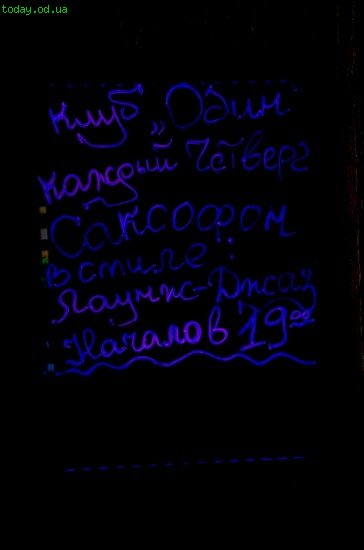 today.od.ua
Клуб „Один"
каждый Четверг
Саксофом
в стиле:
Лаунж-Джаз
Начало в 19⁰⁰